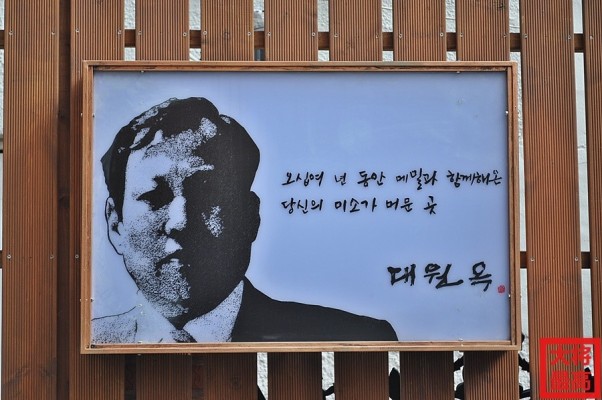 오십여 년 동안 메밀과 함께해온
당신의 미소가 머문 곳
대원옥